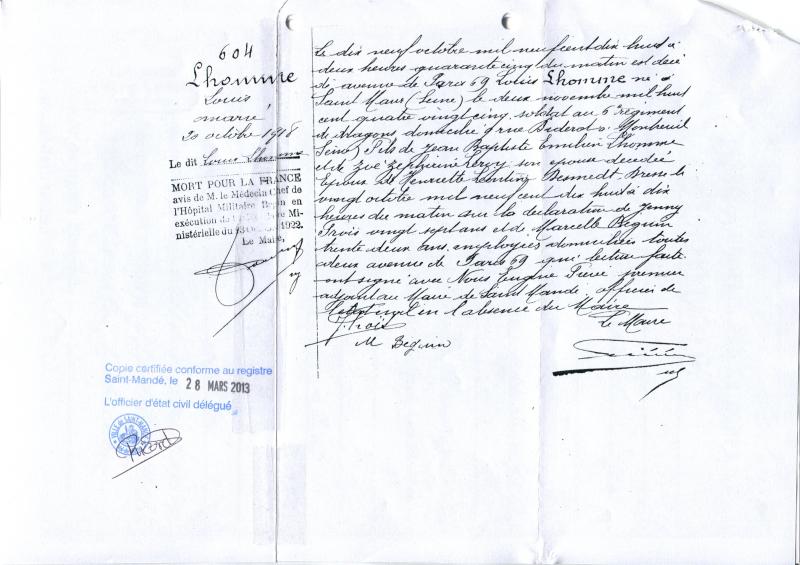 604
Lhomme
Louis
marié
20 octobre 1918
Le dit Louis Lhomme
MORT POUR LA FRANCE
avis de M. le Médecin Chef de
l'Hôpital Militaire Bégin en
exécution de Mi-
nistérielle du 1922.
Le Maire,
Le dix neuf octobre mil neuf cent dix huit à
deux heures quarante cinq du matin est décé
dé avenue de Paris 69 Louis Lhomme né à
Saint Maur (Seine) le deux novembre mil huit
cent quatre vingt cinq, soldat au 6e régiment
de dragons domicilié 9 rue Diderot à Montreuil
Seine) fils de Jean Baptiste Lhomme
et de Zoé Leroy son épouse décédée
Epoux de Henriette Dressé le
vingt octobre mil neuf cent dix huit à dix
heures du matin sur la déclaration de Jenny
Trois vingt sept ans et de Marcelle Beguin
trente deux ans, employées domiciliées toutes
deux avenue de Paris 69 qui lecture faite
ont signé avec Nous Eugène premier
adjoint au Maire de Saint Mandé, officier de
l'état civil en l'absence du Maire
J. Trois
Le Maire
M Beguin
Copie certifiée conforme au registre
Saint-Mandé, le 28 MARS 2013
L'officier d'état civil délégué